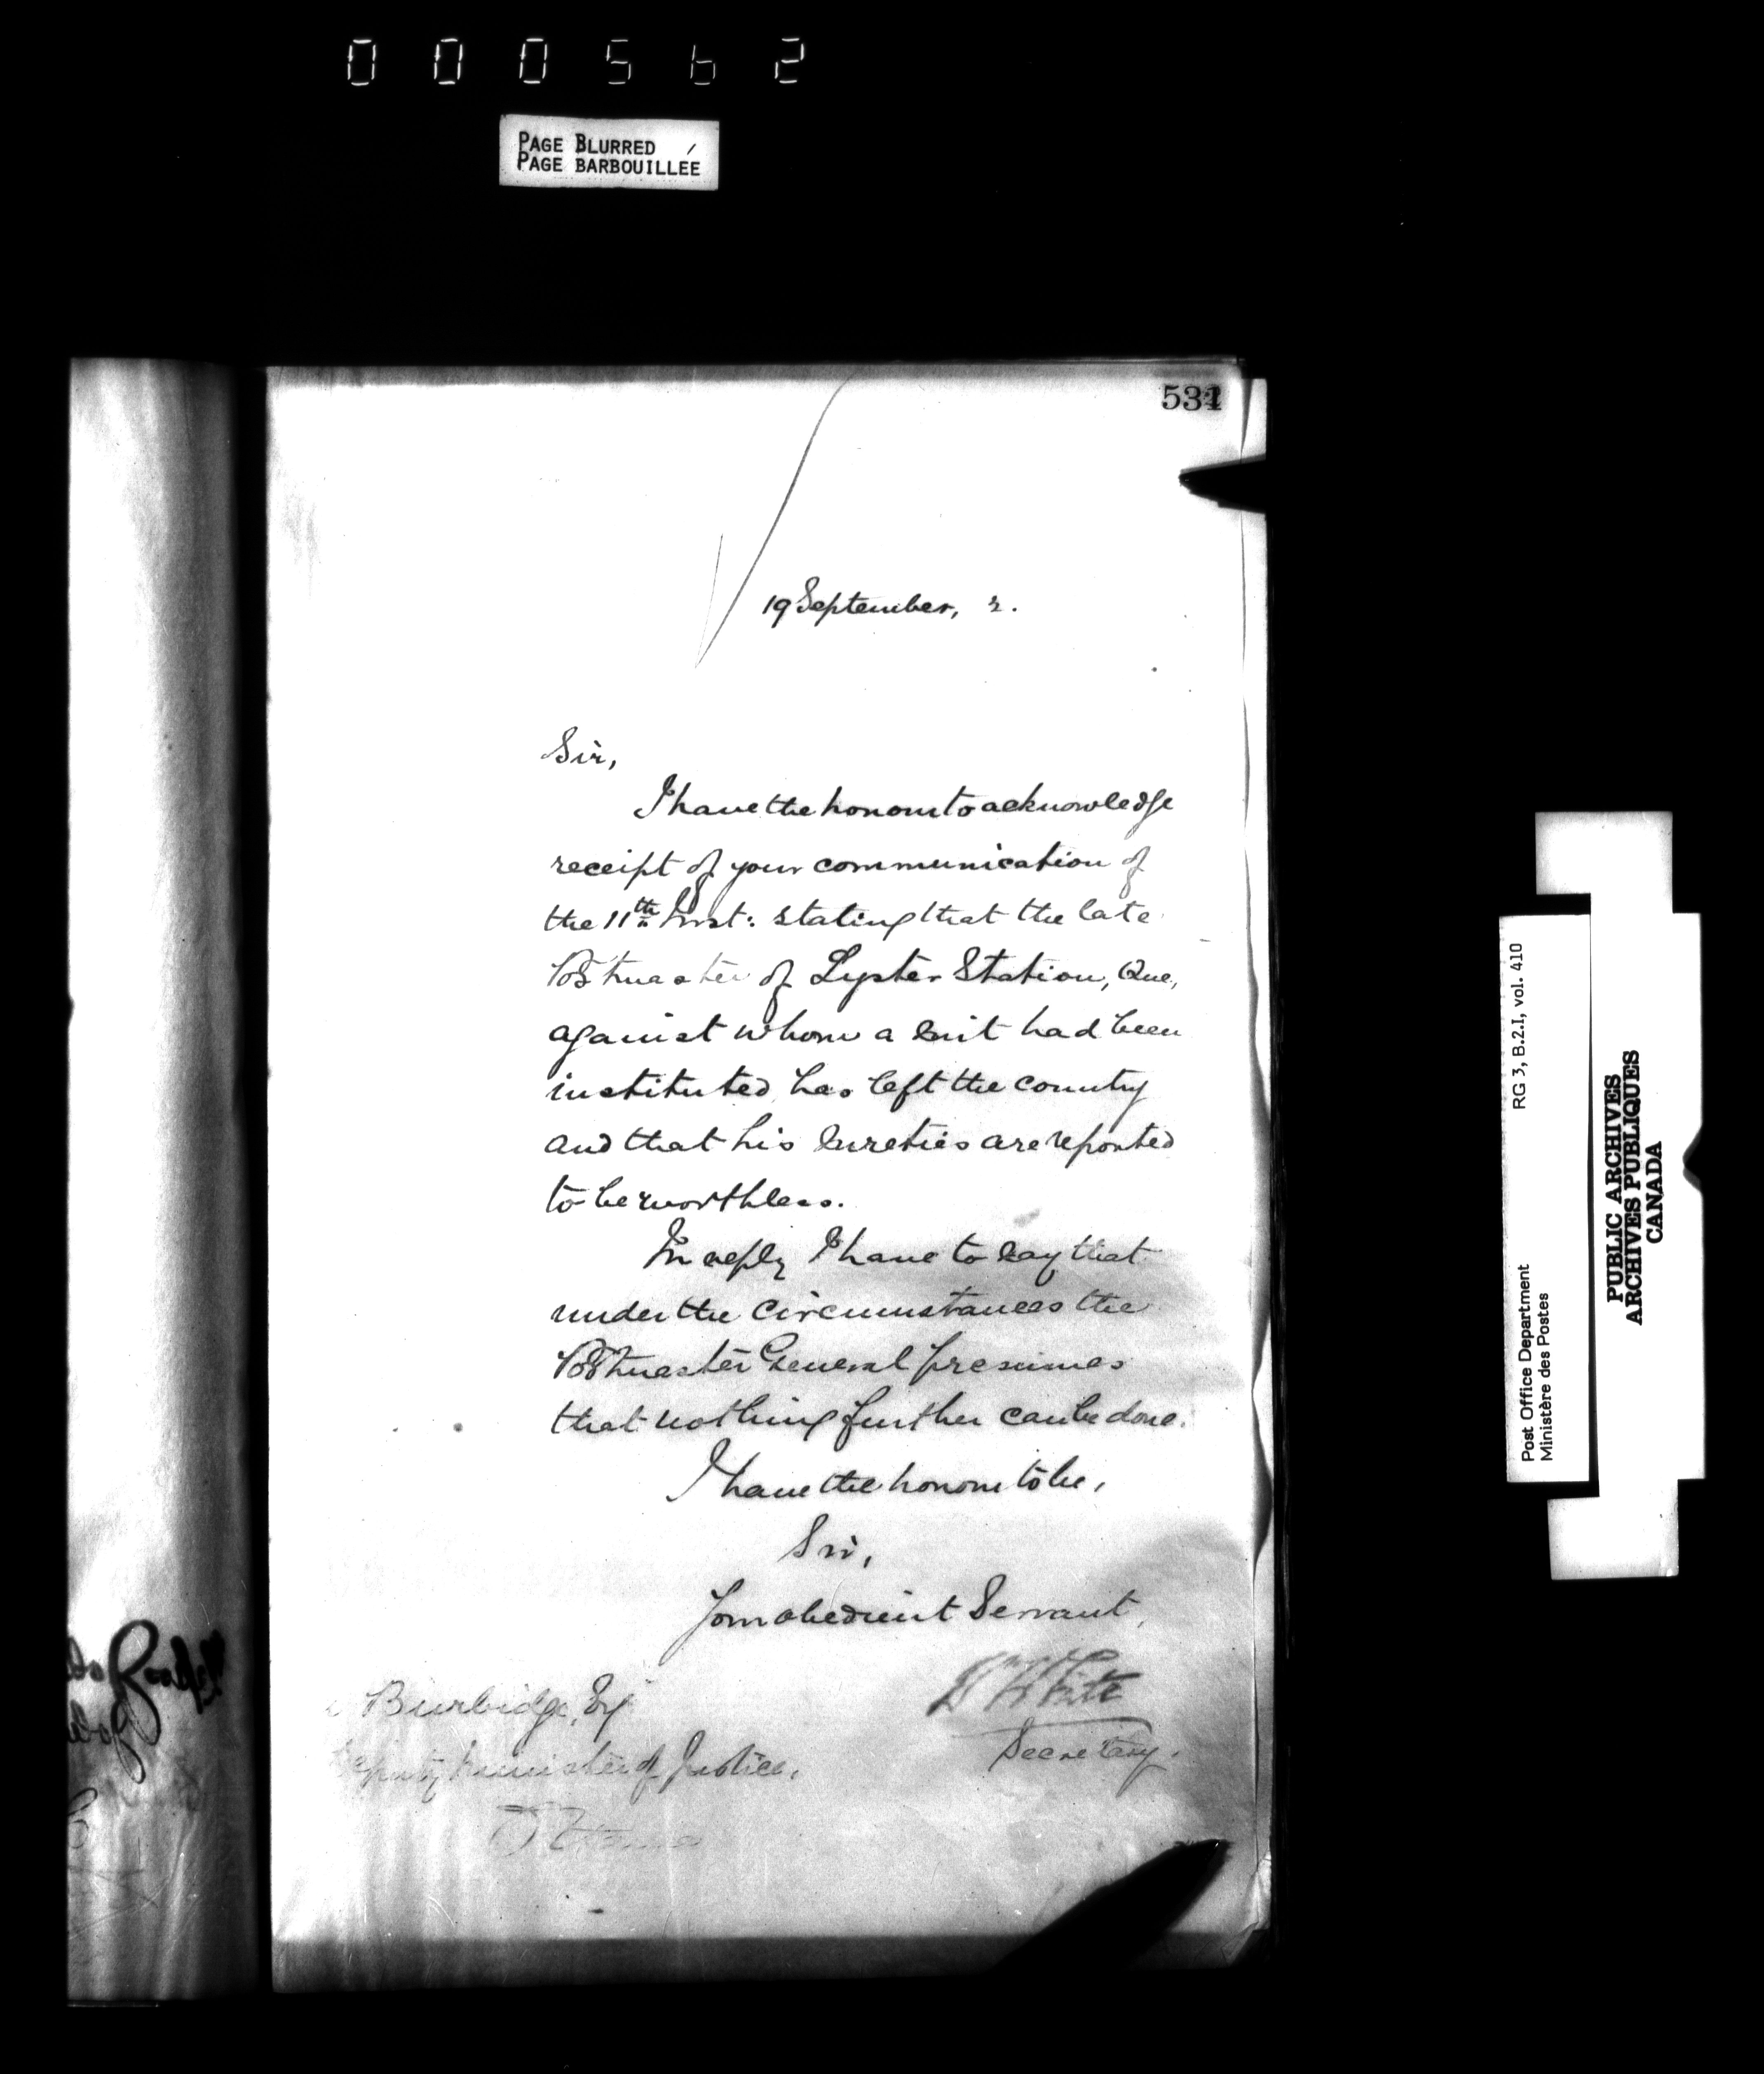 000562
PAGE BLURRED
PAGE BARBOUILLÉE
531
19 September, 2.
Sir,
I have the honour to acknowledge
receipt of your communication of
the 11th Inst: stating that the late
Postmaster of Lyster Station, Que,
against whom a suit had been
instituted has left the country
and that his sureties are reported
to be worthless.
In reply I have to say that
under the circumstances the
Postmaster General presumes
that nothing further can be done.
I have the honour to be,
Sir,
Your obedient Servant,
Wm White
Secretary.
Burbidge, Esq
Deputy Minister of Justice,
Ottawa
RG 3, B.2.I, vol. 410
Post Office Department
Ministère des Postes
PUBLIC ARCHIVES
ARCHIVES PUBLIQUES
CANADA